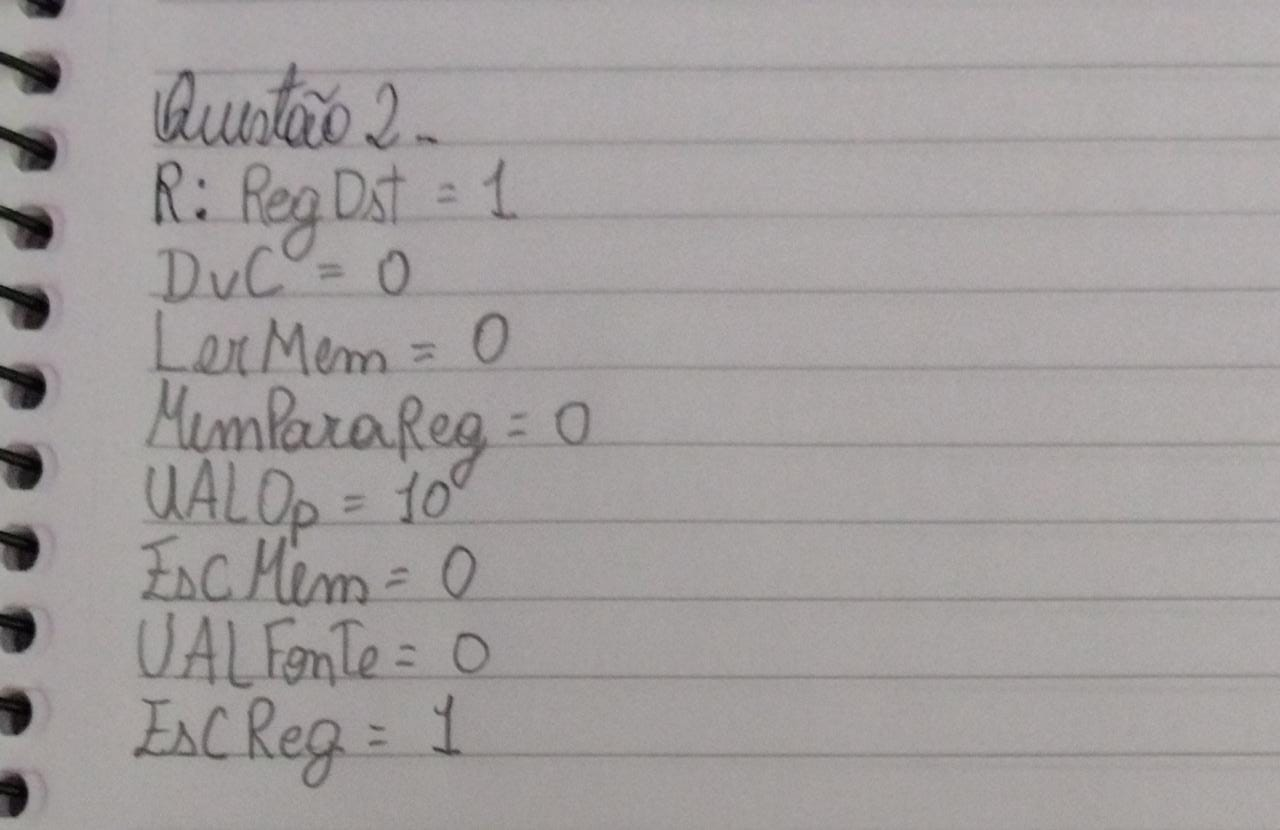 Questão 2-
R: RegDst = 1
DvC = 0
LerMem = 0
MemParaReg = 0
UALOp = 10
EscMem = 0
UALFonTe = 0
EscReg = 1